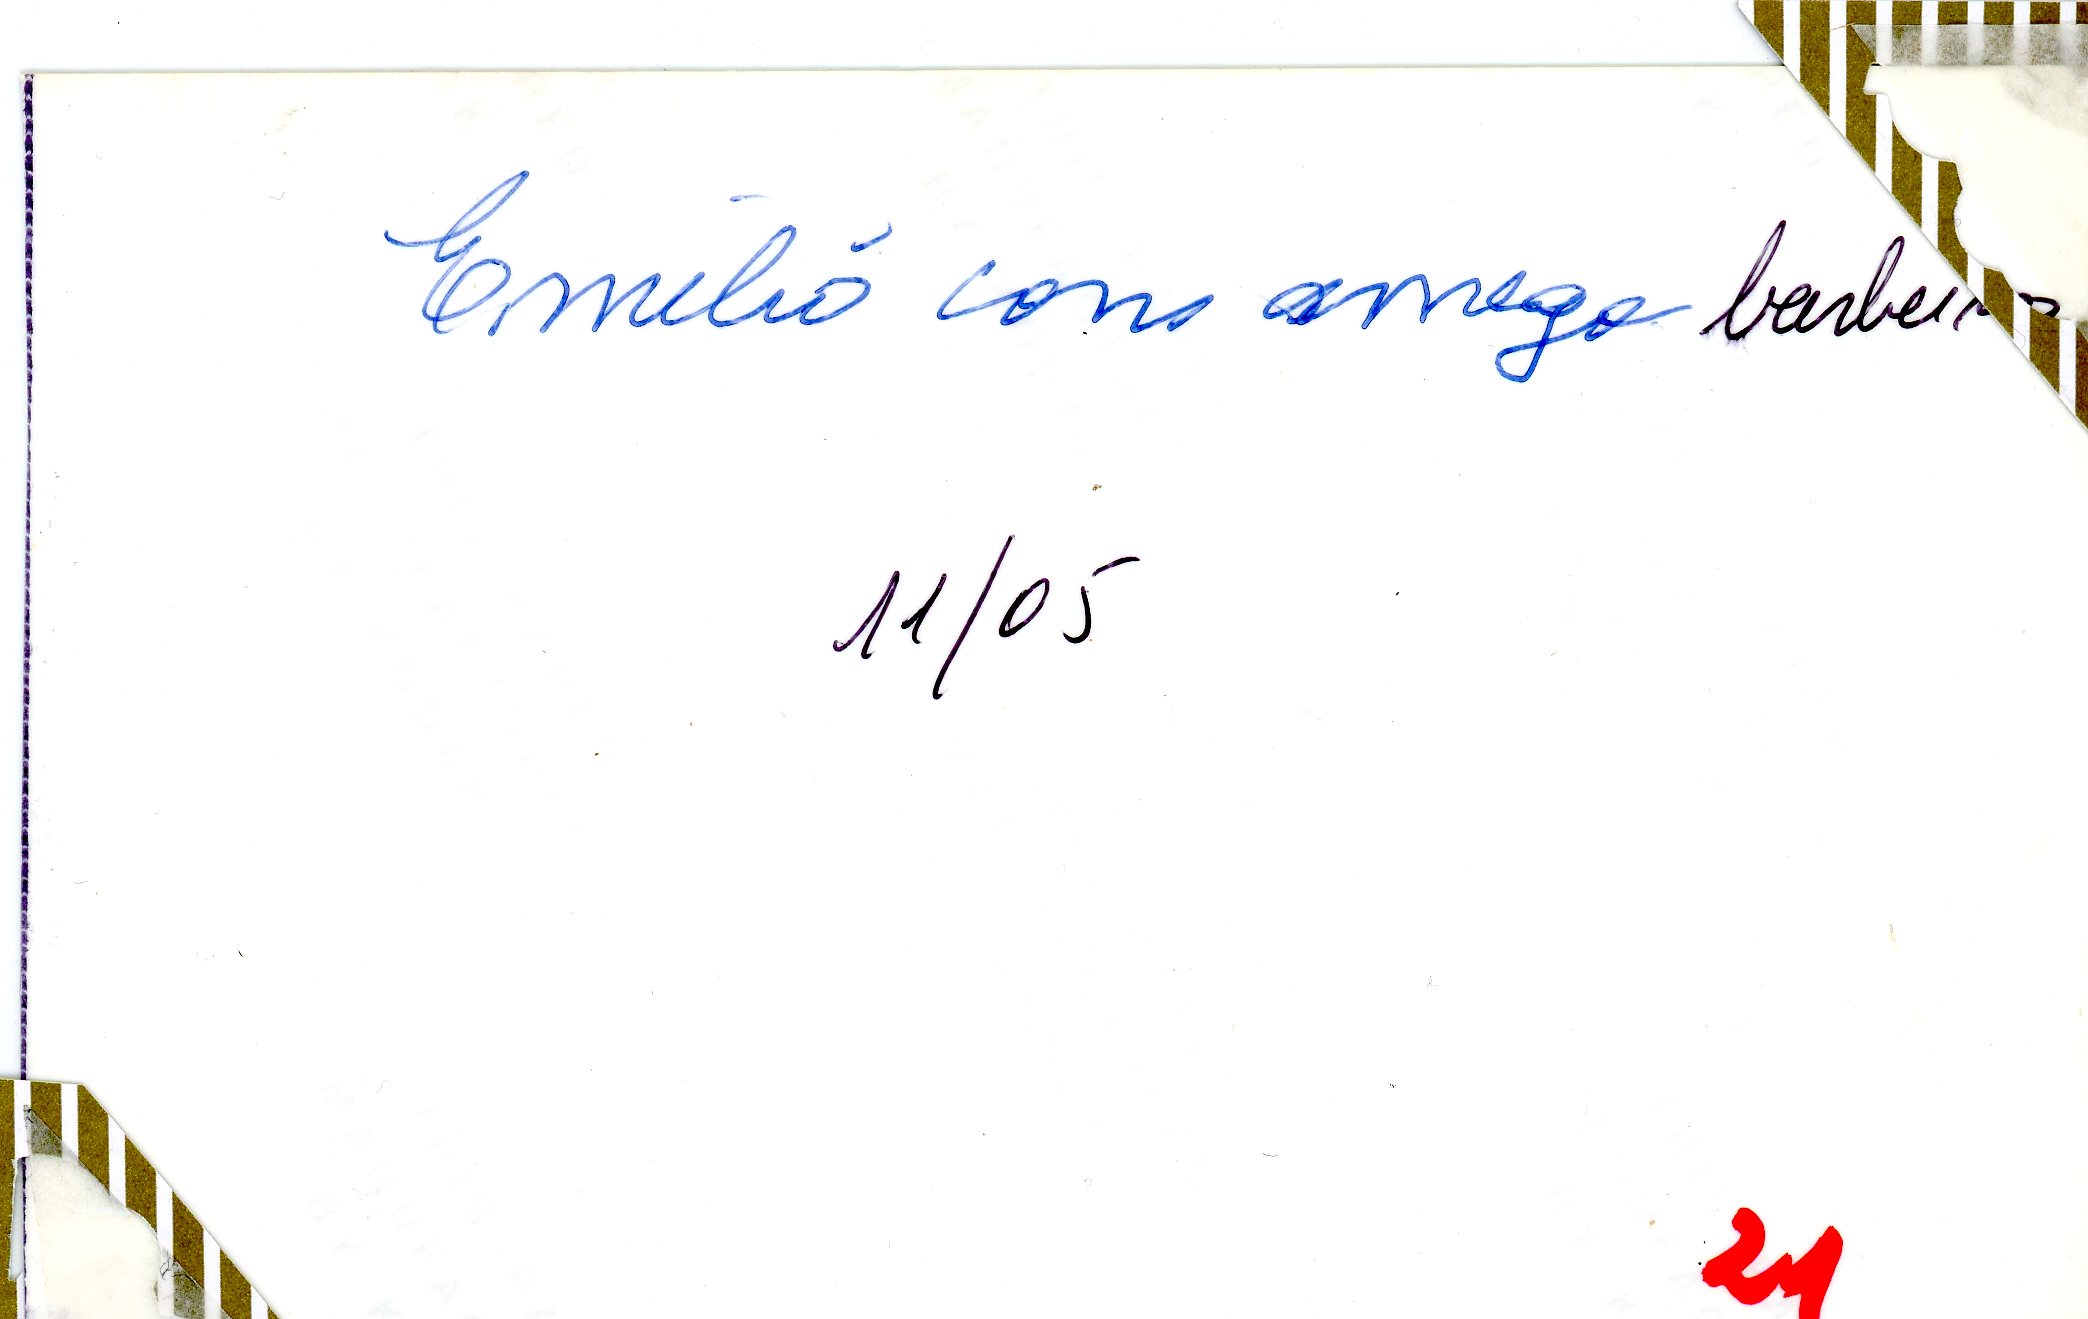 Emílio com amigo barbeiro
11/05
21